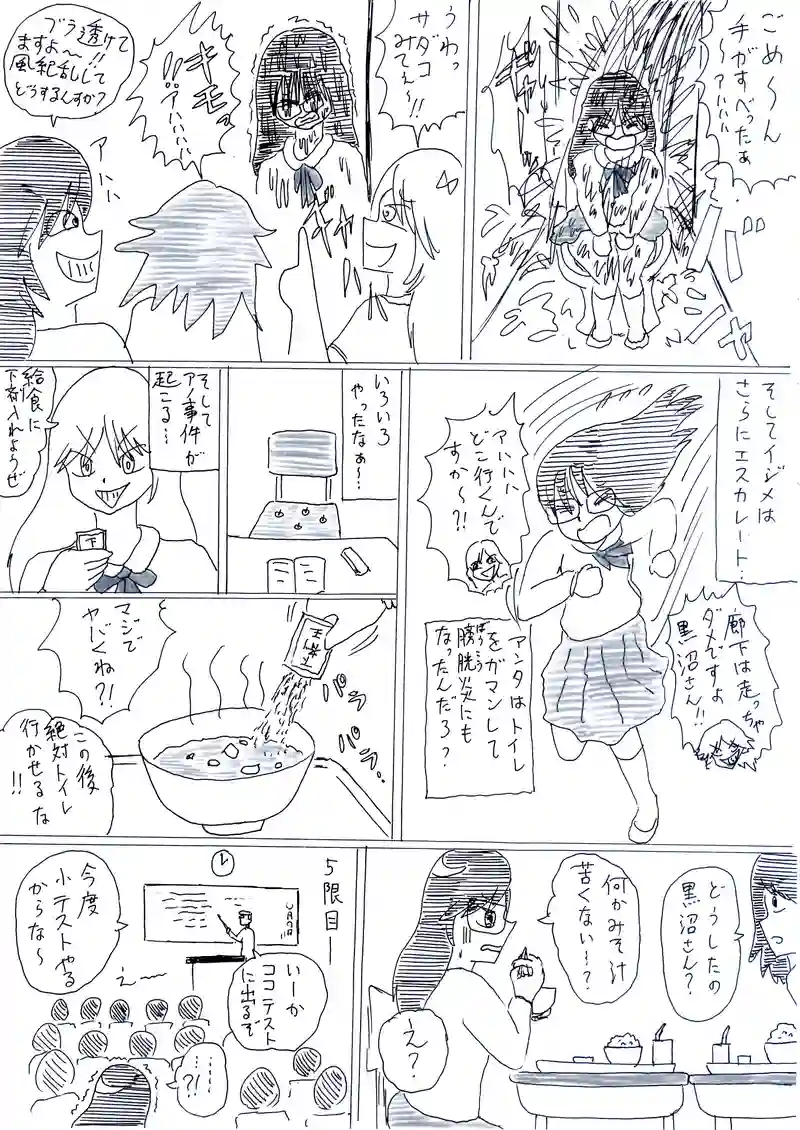 ごめ〜ん
手がすべったぁ
〜アハハハ
ギャハ
バシャ
うわっ
サダコ
みてぇ〜!!
キモっ
!!アハハハハ
ギャ
ブラ透けて
ますよ〜!!
風紀乱して
どうするんすか?
アハハ
そしてイジメは
さらにエスカレート…
アハハハ
どこ行くんで
すか〜?!
廊下は走っちゃ
ダメですよ
黒沼さん!!
アンタはトイレ
をガマンして
膀胱炎にも
ぼうこう
なったんだろ?
いろいろ
やったなぁ〜…
そして
アノ事件が
起こる…
給食に
下剤入れようぜ
下
マジで
ヤバくね?!
下剤
パラ
パラ
この後
絶対トイレ
行かせるな
!!
どうしたの
黒沼さん?
何かみそ汁
苦くない〜?
え?
5限目―
いーか
ココテスト
に出るぞ
今度
小テストやる
からな〜
え――
……
?!